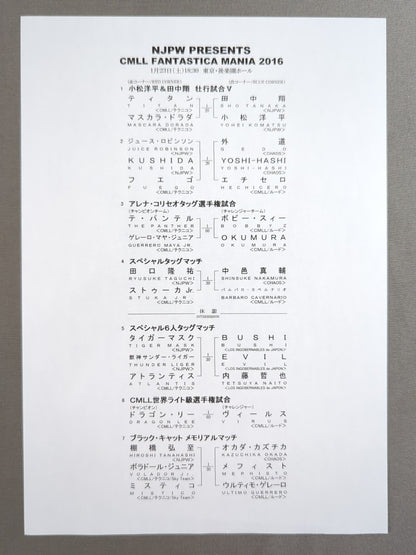 NJPW PRESENTS
CMLL FANTASTICA MANIA 2016
1月23日(土)18:30 東京・後楽園ホール
(赤コーナー/RED CORNER) (青コーナー/BLUE CORNER)
1 小松洋平&田中翔 壮行試合Ⅴ
ティタン 田中翔
TITAN SHO TANAKA
<CMLL/テクニコ> <NJPW>
マスカラ・ドラダ 小松洋平
MASCARA DORADA YOHEI KOMATSU
<CMLL/テクニコ> <NJPW>
2 ジュース・ロビンソン 外道
JUICE ROBINSON GEDO
<NJPW> <CHAOS>
KUSHIDA YOSHI-HASHI
KUSHIDA YOSHI-HASHI
<NJPW> <CHAOS>
フエゴ エチセロ
FUEGO HECHICERO
<CMLL/テクニコ> <CMLL/ルード>
3 アレナ・コリセオタッグ選手権試合
(チャンピオンチーム) (チャレンジャーチーム)
ザ・パンテル ボビー・Z
THE PANTHER BOBBY Z
<CMLL/テクニコ> <CMLL/ルード>
ゲレーロ・マヤ・ジュニア OKUMURA
GUERRERO MAYA JR. OKUMURA
<CMLL/テクニコ> <CMLL/ルード>
4 スペシャルタッグマッチ
田口隆祐 中邑真輔
RYUSUKE TAGUCHI SHINSUKE NAKAMURA
<NJPW> <CHAOS>
ストゥーカJr. バルバロ・カベルナリオ
STUKA JR. BARBARO CAVERNARIO
<CMLL/テクニコ> <CMLL/ルード>
休憩
INTERMISSION
5 スペシャル6人タッグマッチ
タイガーマスク BUSHI
TIGER MASK BUSHI
<NJPW> <LOS INGOBERNABLES de JAPON>
獣神サンダー・ライガー EVIL
THUNDER LIGER EVIL
<NJPW> <LOS INGOBERNABLES de JAPON>
アトランティス 内藤哲也
ATLANTIS TETSUYA NAITO
<CMLL/テクニコ> <LOS INGOBERNABLES de JAPON>
6 CMLL世界ライト級選手権試合
(チャンピオン) (チャレンジャー)
ドラゴン・リー ヴィールス
DRAGON LEE VIRUS
<CMLL/テクニコ> <CMLL/ルード>
7 ブラック・キャット メモリアルマッチ
棚橋弘至 オカダ・カズチカ
HIROSHI TANAHASHI KAZUCHIKA OKADA
<NJPW> <CHAOS>
ボラドール・ジュニア メフィスト
VOLADOR Jr. MEPHISTO
<CMLL/テクニコ/Sky Team> <CMLL/ルード>
ミスティコ ウルティモ・ゲレーロ
MISTICO ULTIMO GUERRERO
<CMLL/テクニコ/Sky Team> <CMLL/ルード>